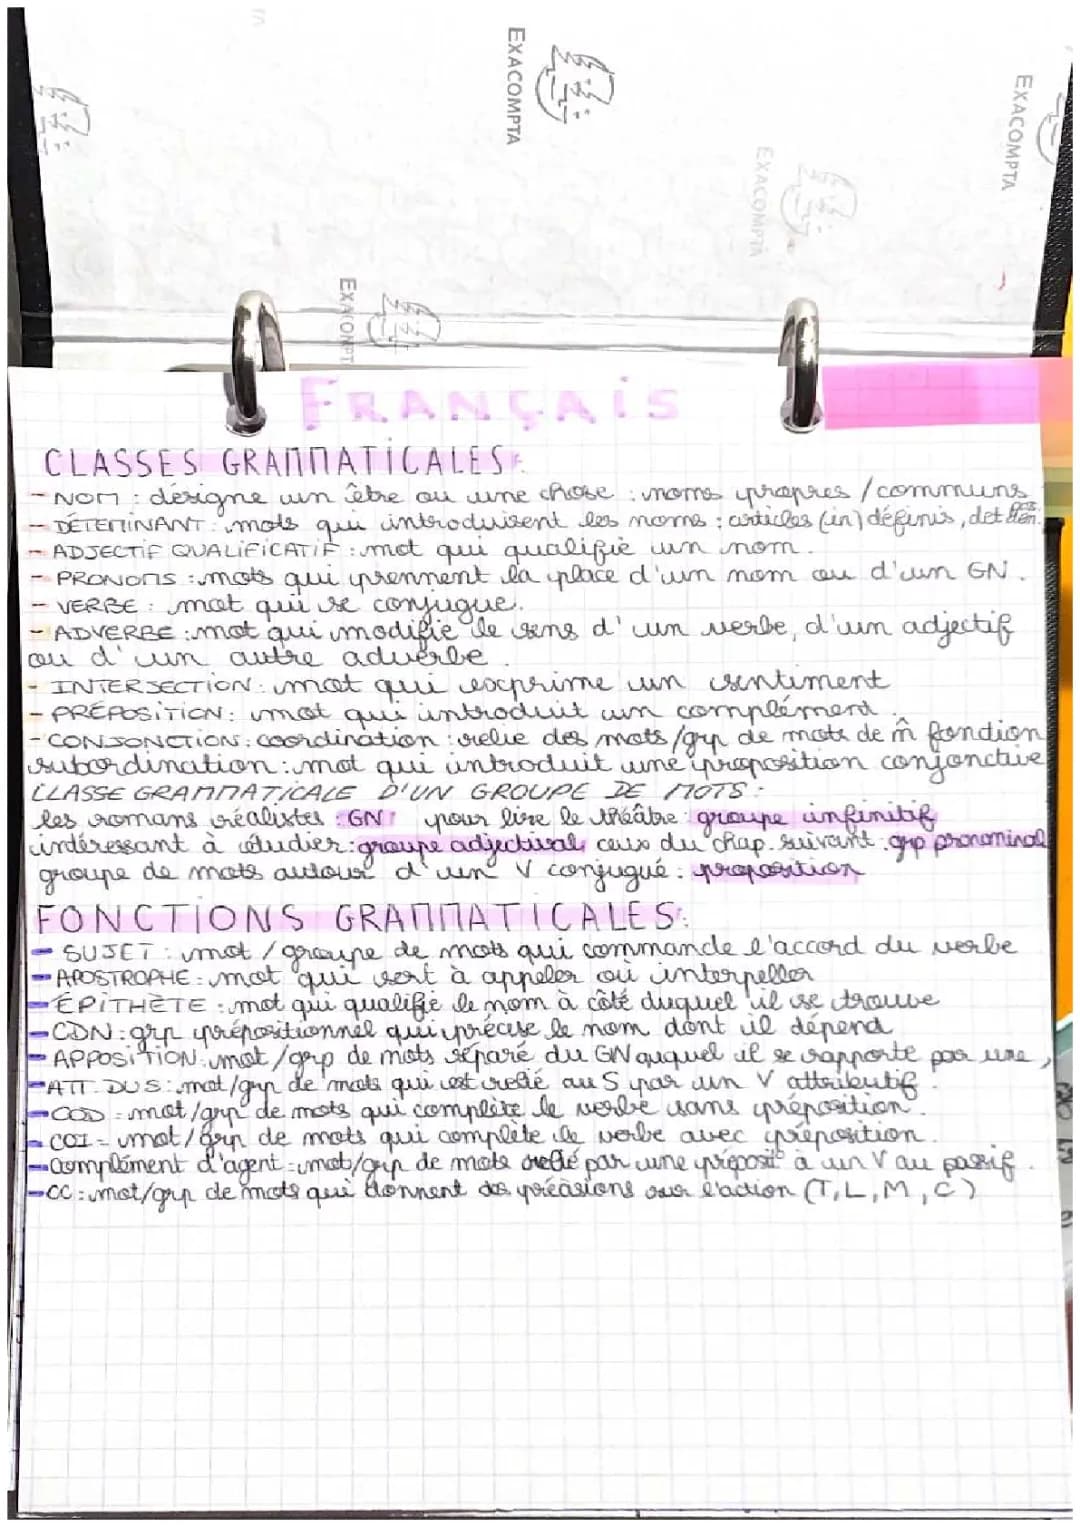 EXACOMPTA
EXACOMPTA
EXACOMPTA
FRANÇAIS
CLASSES GRAMMATICALES :
- NOM : désigne un être ou une chose : noms propres / communs
- DÉTERMINANT : mots qui introduisent les noms : articles (in)définis, det dém. pos.
- ADJECTIF QUALIFICATIF : mot qui qualifie un nom.
- PRONOMS : mots qui prennent la place d'un nom ou d'un GN.
- VERBE : mot qui se conjugue.
- ADVERBE : mot qui modifie le sens d'un verbe, d'un adjectif
ou d'un autre adverbe.
- INTERJECTION : mot qui exprime un sentiment
- PRÉPOSITION : mot qui introduit un complément.
- CONJONCTION : coordination : relie des mots/grp de mots de m̂ fonction
subordination : mot qui introduit une proposition conjonctive
CLASSE GRAMMATICALE D'UN GROUPE DE MOTS :
les romans réalistes : GN pour lire le théâtre : groupe infinitif
intéressant à étudier : groupe adjectival, ceux du chap. suivant : grp pronominal
groupe de mots autour d'un V conjugué : proposition
FONCTIONS GRAMMATICALES :
- SUJET : mot / groupe de mots qui commande l'accord du verbe
- APOSTROPHE : mot qui sert à appeler ou interpeller
- ÉPITHÈTE : mot qui qualifie le nom à côté duquel il se trouve
- CDN : grp prépositionnel qui précise le nom dont il dépend
- APPOSITION : mot / grp de mots séparé du GN auquel il se rapporte par une ,
- ATT. DU S : mot/grp de mots qui est relié au S par un V attributif.
- COD = mot/grp de mots qui complète le verbe sans préposition.
- COI = mot/grp de mots qui complète le verbe avec préposition.
- Complément d'agent = mot/grp de mots relié par une préposit° à un V au passif.
- CC : mot/grp de mots qui donnent des précisions sur l'action (T, L, M, C)